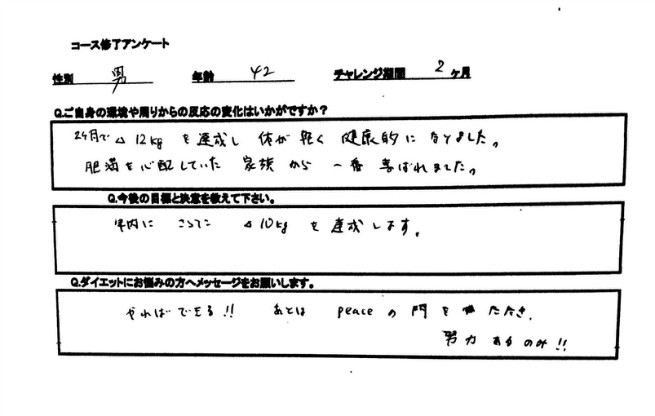 コース修了アンケート
性別 男 年齢 42 チャレンジ期間 2 ヶ月
Q.ご自身の環境や周りからの反応の変化はいかがですか？
2ヶ月で △12kg を達成し 体が軽く 健康的に なりました。
肥満を心配していた 家族 から 一番 喜ばれました。
Q.今後の目標と決意を教えて下さい。
年内に さらに △10kg を 達成します。
Q.ダイエットにお悩みの方へメッセージをお願いします。
やればできる!! あとは peace の 門 を たたき、
努力 あるのみ!!